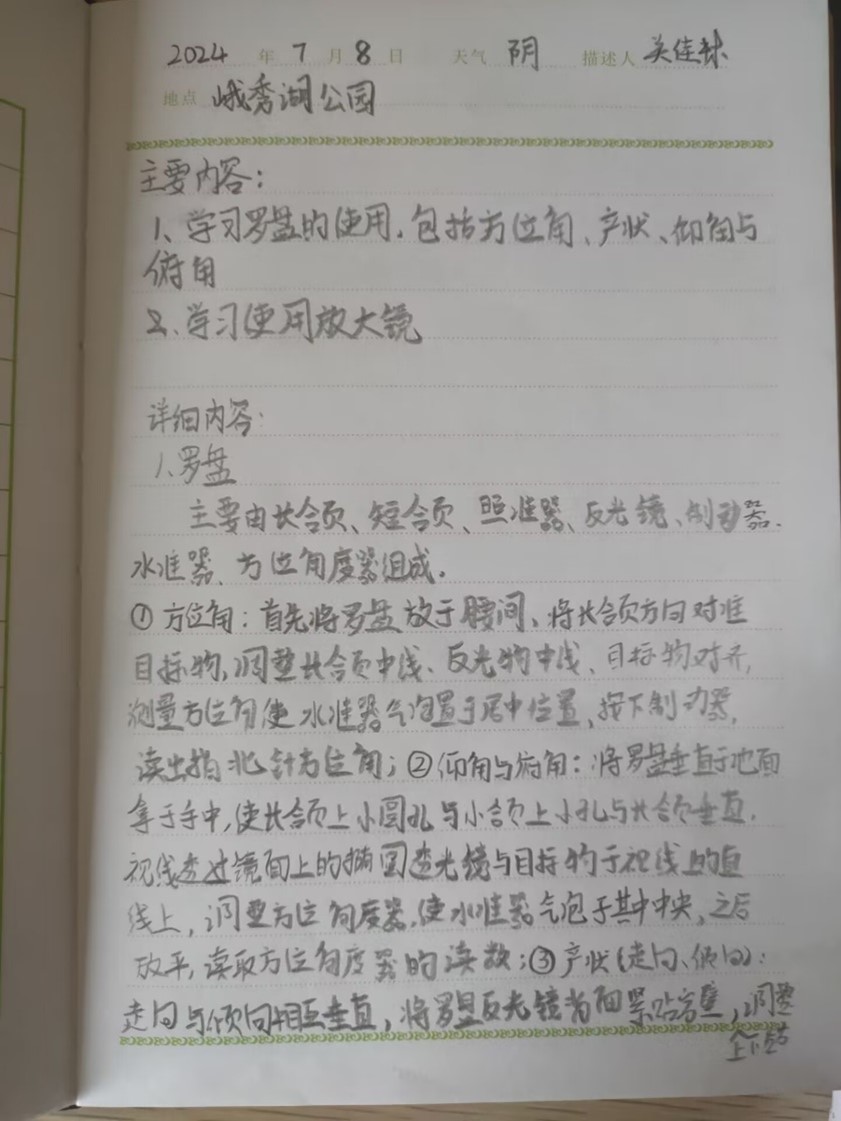 2024 年 7 月 8 日 天气 阴 描述人 关佳
地点 峨秀湖公园
主要内容：
1、学习罗盘的使用，包括方位角、产状、仰角与
俯角
2、学习使用放大镜
详细内容：
1、罗盘
主要由长合页、短合页、照准器、反光镜、制动器、
水准器、方位角度器组成。
① 方位角：首先将罗盘放于腰间、将长合页方向对准
目标物，调整长合页中线、反光物中线、目标物对齐，
测量方位角使水准器气泡置于居中位置，按下制动器，
读出指北针方位角；②仰角与俯角：将罗盘垂直于地面
拿于手中，使长合页上小圆孔与小合页上小孔与长合页垂直，
视线透过镜面上的椭圆透光镜与目标物于视线上的直
线上，调整方位角度器，使水准器气泡于其中中央，之后
放平，读取方位角度器的读数；③产状（走向、倾向）：
走向与倾向相互垂直，将罗盘反光镜背面紧贴岩壁，调整